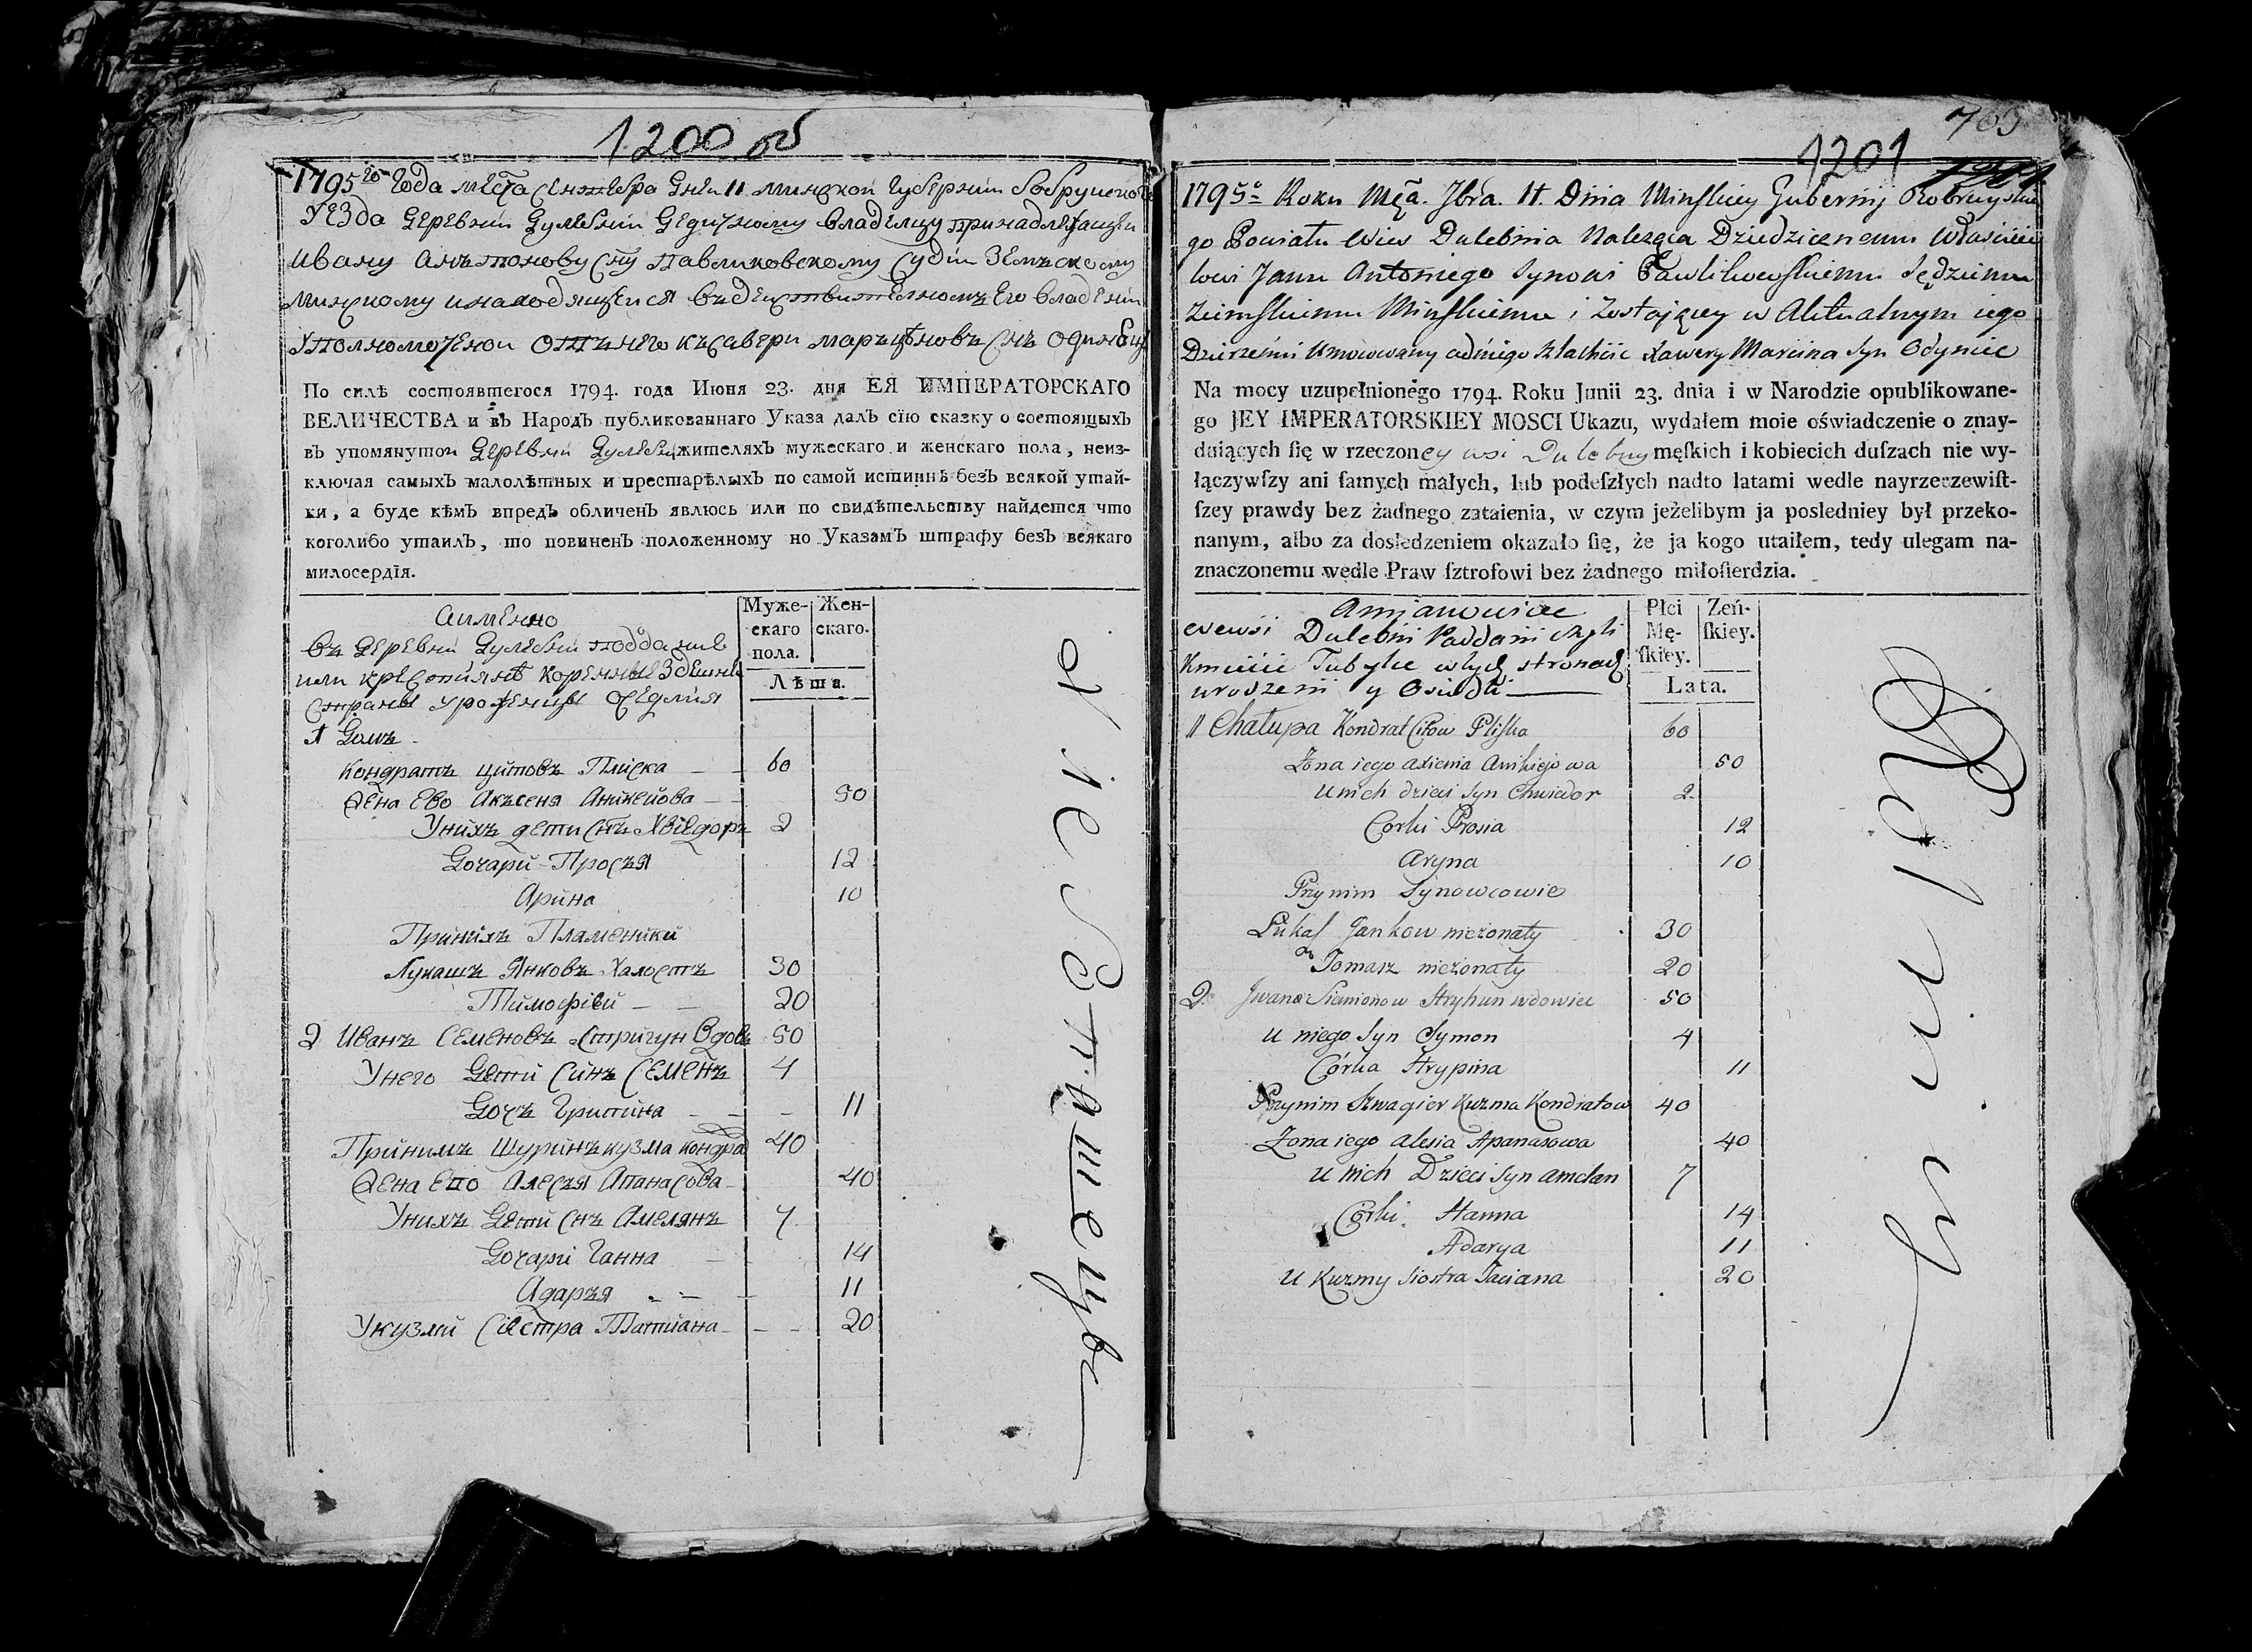 1200 об
1795го года месца сентебра дня 11 минской губернии бобруиского
уезда деревни дулебни дедичному владелцу принадлежащеи
ивану антонову сну павликовскому судіи земъскому
минскому инаходящеися въдеиствителномъ его владении
уполномоченои отънего къcавери марцѣновъ снъ одинецъ
По силѣ состоявшегося 1794. года Июня 23. дня ЕЯ ИМПЕРАТОРСКАГО
ВЕЛИЧЕСТВА и въ НародЪ публикованнаго Указа далЪ сїю сказку о состоящыхЪ
въ упомянутои деревни дулебни жителяхЪ мужескаго и женскаго пола, неиз-
ключая самыхЪ малолѣтных и престарѣлыхЪ по самой истиннѣ безЪ всякой утай-
ки, а буде кѣмЪ впредЪ обличенЪ явлюсь или по свидѣтельству найдется что
коголибо утаилЪ, то повиненЪ положенному по УказамЪ штрафу безЪ всякаго
милосердїя.
аименно
въ деревни дулебни поддание
или крестиянѣ коренные здешне
страны уроженцы оседлия
Муже-
скаго
пола.
Жен-
скаго.
Лѣта.
1 Домъ
Кондратъ цитовъ Плиска 60
Жена Ево Акъсеня Аникеиова 50
Унихъ дети снъ Хвіедоръ 2
Дочари Просъя 12
Арина 10
Принихъ Пламеники
Лукашъ Янковъ Халостъ 30
Тимофіей 20
2 Иванъ Семеновъ Стригун Вдовъ 50
Унего Дети Синъ Семенъ 4
Дочъ Грипина 11
Принимъ Шуринъ кузма кондра 40
Жена Его Алесъя Апанасова 40
Унихъ Дети Снъ Амелянъ 7
Дочари Ганна 14
Адаръя 11
Укузми Сіестра Татиана 20
709
1201
1795o Roku Mca. 7bra. 11. Dnia Minskiey Gubernij Bobruyskie
go Powiatu Wies Dulebnia Naleząca Dziedzicznemu Właścicie
lowi Janu Antoniego Synowi Pawlikowskiemu Sędziemu
Ziemskiemu Minskiemu i Zostaiącey w Aktualnym iego
Dzierzeniu Umocowany odniego Szlachcic Xawery Marcina Syn Odyniec
Na mocy uzupełnionégo 1794. Roku Junii 23. dnia i w Narodzie opublikowane-
go JEY IMPERATORSKIEY MOSCI Ukazu, wydałem moie oświadczenie o znay-
duiących ſię w rzeczoney wsi Dulebny męſkich i kobiecich duſzach nie wy-
łączywſzy ani ſamych małych, lub podeſzłych nadto latami wedle nayrzeczewiſt-
ſzey prawdy bez żadnego zataienia, w czym jeżelibym ja posledniey był przeko-
nanym, albo za dosledzeniem okazało ſię, że ja kogo utaiłem, tedy ulegam na-
znaczonemu wedle Praw ſztrofowi bez żadnego miłoſierdzia.
Amjanowicie
wewsi Dulebni Poddani czyli
Kmiecie Tubylce wtych stronach
urodzeni y Osiedli
Płci
Mę-
ſkiey.
Zeń-
ſkiey.
Lata.
1 Chałupa Kondrat Citow Pliska 60
Zona iego Axienia Anikiejowa 50
U nich dzieci Syn Chwiedor 2
Corki Prosia 12
Aryna 10
Przynim Synowcowie
Łukasz Jankow nieżonaty 30
Tomasz nieżonaty 20
2 Jwana Siemionow Stryhun wdowiec 50
U niego Syn Symon 4
Córka Hrypina 11
Przynim Szwagier Kuzma Kondratow 40
Zona iego Alesia Apanasowa 40
U nich Dzieci Syn Amelan 7
Córki Hanna 14
Adarya 11
U Kuzmy Siostra Taciana 20